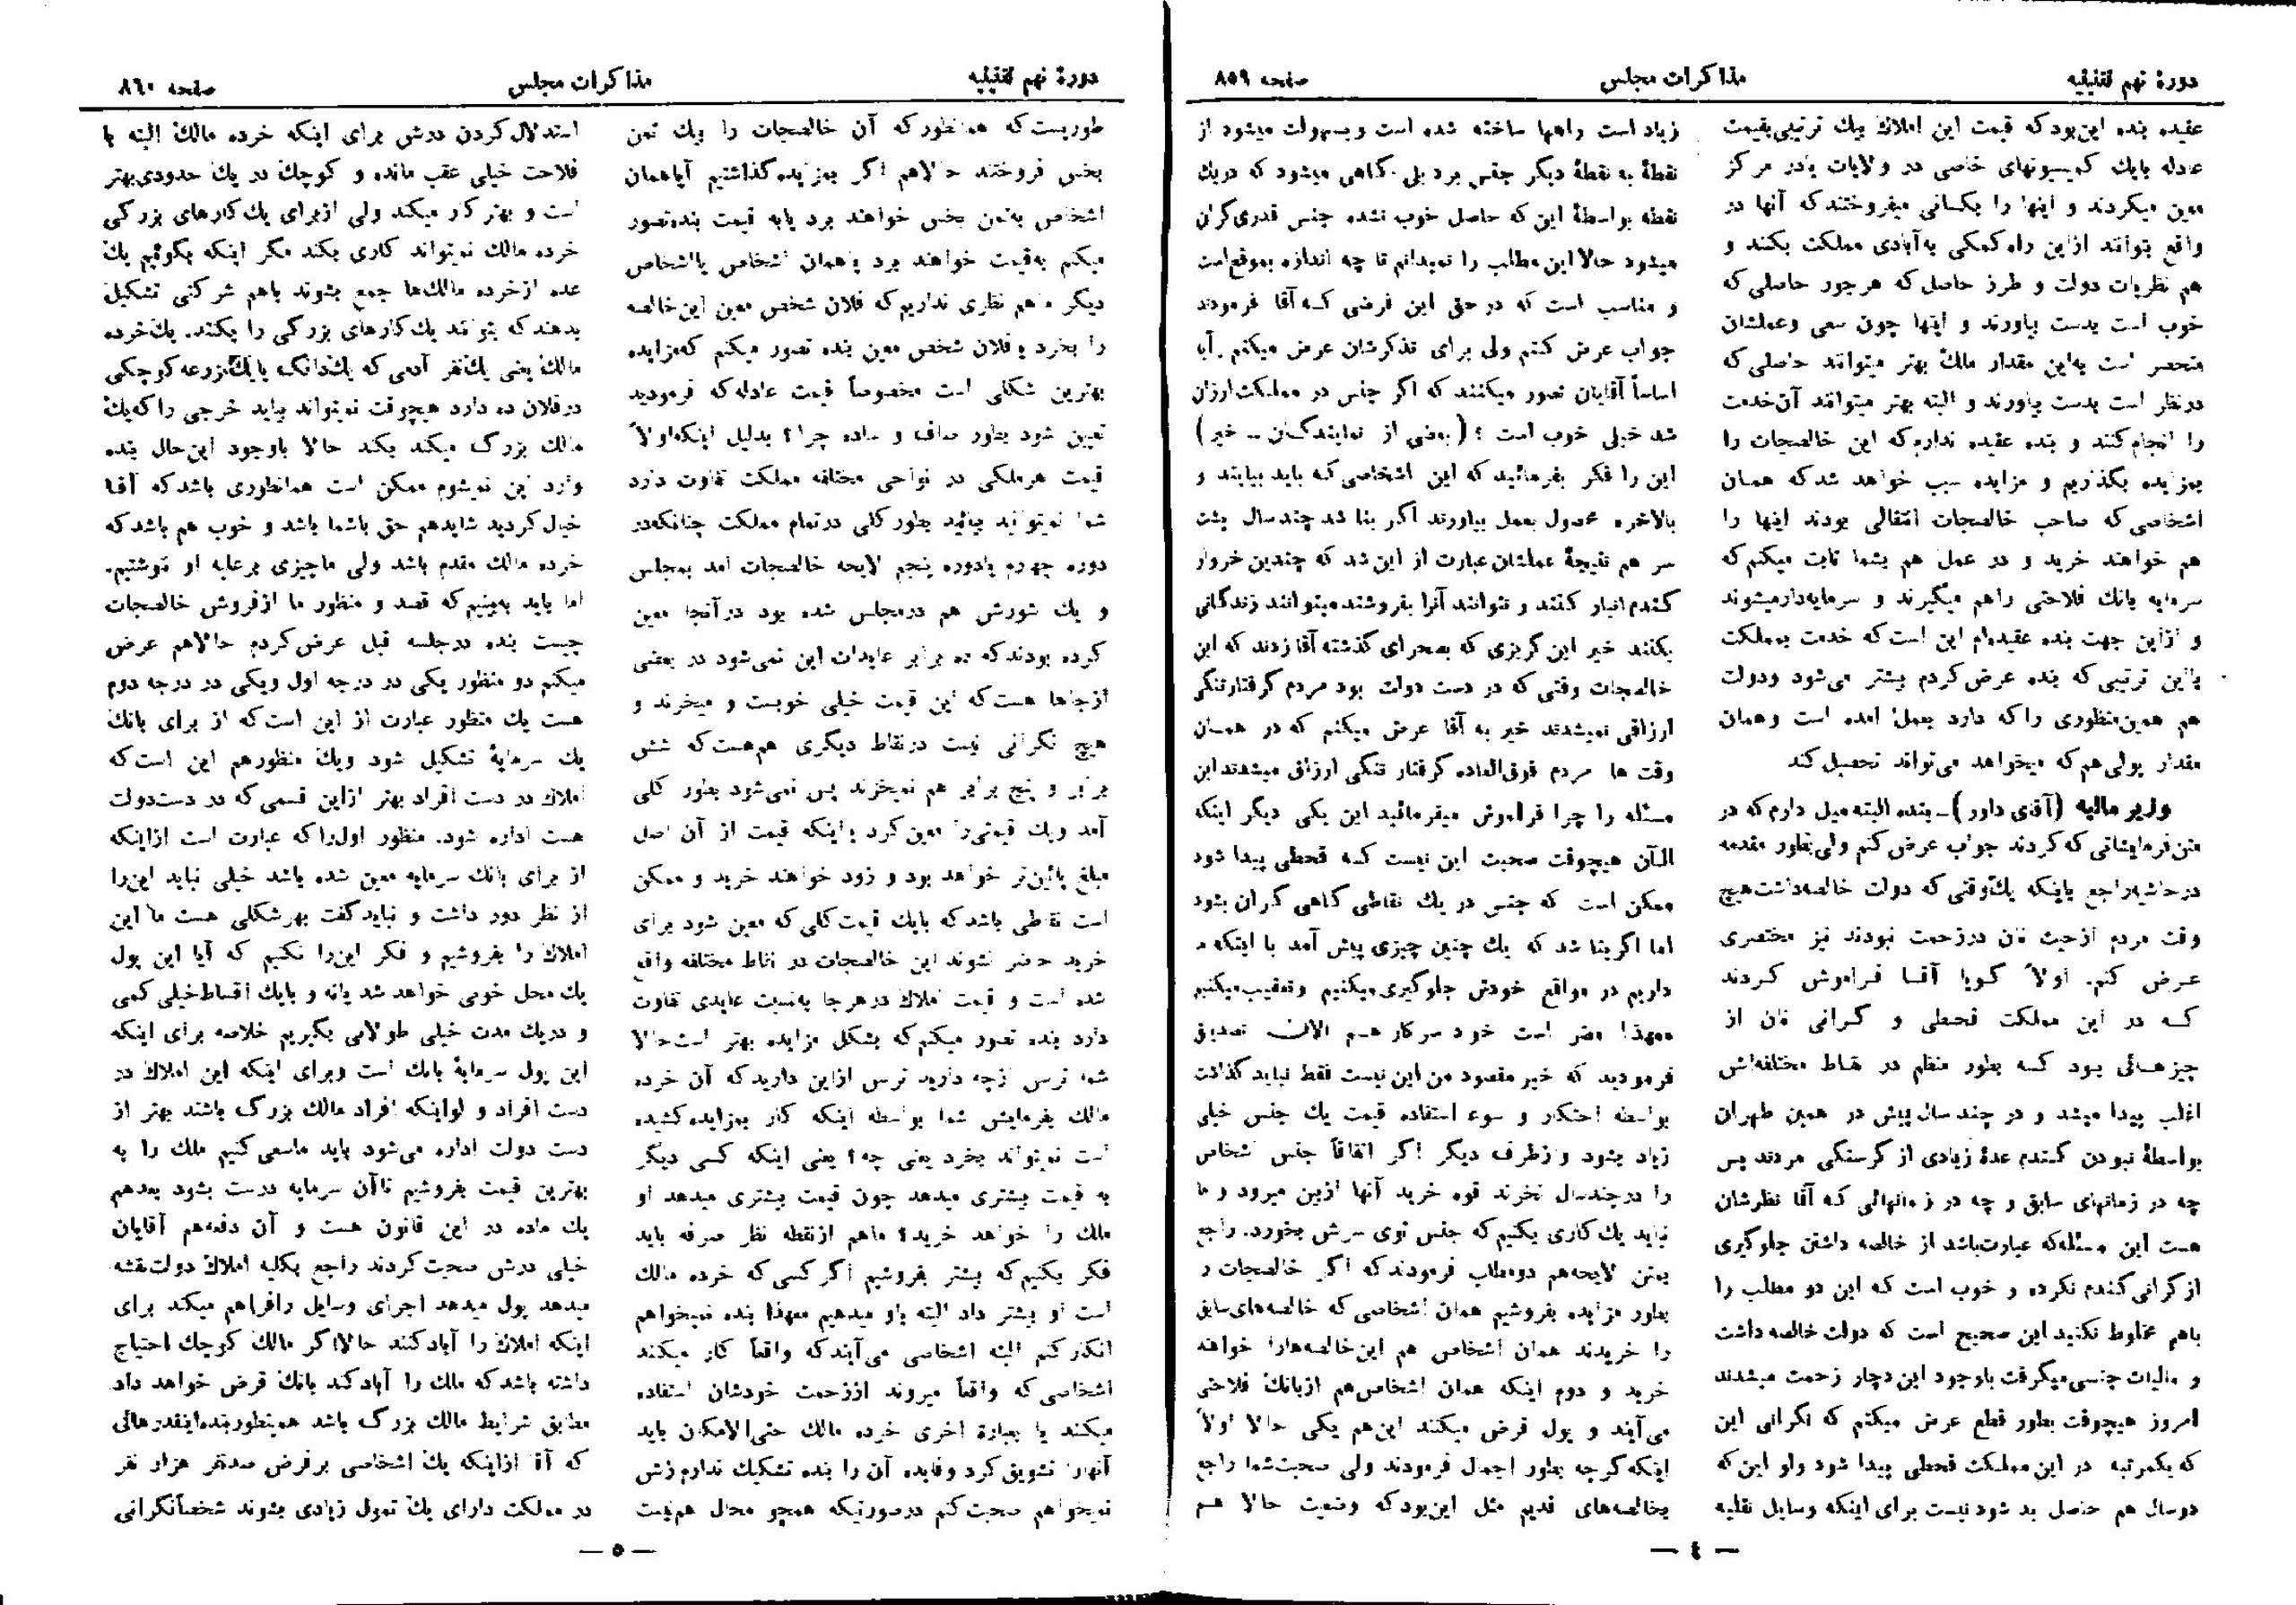 دورهٔ نهم تقنینیه
مذاکرات مجلس
صفحه ۸۵۹
عقیده بنده این بود که قیمت این املاک بیک ترتیبی بقیمت
عادله بایک کمیسیونهای خاصی در ولایات یادر مرکز
معین میکردند و اینها را بکسانی میفروختند که آنها در
واقع بتوانند ازاین راه کمکی به آبادی مملکت بکنند و
هم نظریات دولت و طرز حاصل که هرجور حاصلی که
خوب است بدست بیاورند و اینها چون سعی وعملشان
منحصر است به این مقدار مالک بهتر میتوانند حاصلی که
درنظر است بدست بیاورند و البته بهتر میتوانند آن خدمت
را انجام کنند و بنده عقیده ندارم که این خالصجات را
بمزایده بگذاریم و مزایده سبب خواهد شد که همان
اشخاصی که صاحب خالصجات انتقالی بودند اینها را
هم خواهند خرید و در عمل هم بشما ثابت میکنم که
سرمایه بانک فلاحتی راهم میگیرند و سرمایه دارمیشوند
و ازاین جهت بنده عقیده‌ام این است که خدمت بمملکت
باین ترتیبی که بنده عرض کردم بیشتر می‌شود ودولت
هم همین منظوری را که دارد بعمل آمده است وهمان
مقدار پولی هم که میخواهد می‌تواند تحصیل کند
وزیر مالیه (آقای داور) ـ بنده البته میل دارم که در
متن فرمایشاتی که کردند جواب عرض کنم ولی بطور مقدمه
درحاشیه راجع باینکه یک وقتی که دولت خالصه داشت هیچ
وقت مردم ازحیث نان درزحمت نبودند نیز مختصری
عرض کنم. اولاً گویا آقا فراموش کردند
که در این مملکت قحطی و گرانی نان از
چیزهائی بود که بطور منظم در نقاط مختلفه‌اش
اغلب پیدا میشد و در چند سال پیش در همین طهران
بواسطهٔ نبودن گندم عدهٔ زیادی از گرسنگی مردند پس
چه در زمانهای سابق و چه در زمانهائی که آقا نظرشان
هست این مسئله که عبارت باشد از خالصه داشتن جلوگیری
از گرانی گندم نکرده و خوب است که این دو مطلب را
باهم مخلوط نکنید این صحیح است که دولت خالصه داشت
و مالیات جنسی میگرفت باوجود این دچار زحمت میشدند
امروز هیچوقت بطور قطع عرض میکنم که نگرانی این
که یکمرتبه در این مملکت قحطی پیدا شود ولو این که
دوسال هم حاصل بد شود نیست برای اینکه وسایل نقلیه
زیاد است راهها ساخته شده است و بسهولت میشود از
نقطهٔ به نقطهٔ دیگر جنس برد بلی گاهی میشود که دریک
نقطه بواسطهٔ این که حاصل خوب نشده جنس قدری گران
میشود حالا این مطالب را نمیدانم تا چه اندازه بموقع است
و مناسب است که در حق این فرضی که آقا فرمودند
جواب عرض کنم ولی برای تذکرشان عرض میکنم آیا
اساساً آقایان تصور میکنند که اگر جنس در مملکت ارزان
شد خیلی خوب است ؟ (بعضی از نمایندگان ـ خیر)
این را فکر بفرمائید که این اشخاصی که باید بیایند و
بالاخره محصول بعمل بیاورند اگر بنا شد چند سال پشت
سر هم نتیجهٔ عملشان عبارت از این شد که چندین خروار
گندم انبار کنند و نتوانند آنرا بفروشند میتوانند زندگانی
بکنند خیر این گریزی که بصحرای گذشته آقا زدند که این
خالصجات وقتی که در دست دولت بود مردم گرفتار تنگی
ارزاقی نمیشدند خیر به آقا عرض میکنم که در همان
وقت ها مردم فوق‌العاده گرفتار تنگی ارزاق میشدند این
مسئله را چرا فراموش میفرمائید این یکی دیگر اینکه
الآن هیچوقت صحبت این نیست که قحطی پیدا شود
ممکن است که جنس در یک نقاطی گاهی گران بشود
اما اگر بنا شد که یک چنین چیزی پیش آمد با اینکه ما
داریم در مواقع خودش جلوگیری میکنیم وتعقیب میکنیم
معهذا مضر است خود سرکار هم الان تصدیق
فرمودید که خیر مقصود من این نیست فقط نباید گذاشت
بواسطه احتکار و سوء استفاده قیمت یک جنس خیلی
زیاد بشود وازطرف دیگر اگر اتفاقاً جنس اشخاص
را درچندسال نخرند قوه خرید آنها ازبین میرود و ما
نباید یک کاری بکنیم که جنس توی سرش بخورد. راجع
بمتن لایحه‌هم دومطلب فرمودند که اگر خالصجات را
بطور مزایده بفروشیم همان اشخاصی که خالصه‌های سابق
را خریدند همان اشخاص هم این خالصه‌هارا خواهند
خرید و دوم اینکه همان اشخاص هم ازبانک فلاحتی
می‌آیند و پول قرض میکنند این هم یکی حالا اولاً
اینکه گرچه بطور اجمال فرمودند ولی صحبت شما راجع
بخالصه‌های قدیم مثل این بود که وضعیت حالا هم
— ٤ —
دورهٔ نهم تقنینیه
مذاکرات مجلس
صفحه ۸٦۰
طوریست که همانطور که آن خالصجات را بیک ثمن
بخس فروختند حالاهم اگر بمزایده گذاشتیم آیا همان
اشخاص به‌ثمن بخس خواهند برد یابه قیمت بنده تصور
میکنم به‌قیمت خواهند برد یا همان اشخاص یا اشخاص
دیگر ما هم نظری نداریم که فلان شخص معین این خالصه
را بخرد یا فلان شخص معین بنده تصور میکنم که مزایده
بهترین شکلی است مخصوصاً قیمت عادله که فرمودید
تعیین شود بطور صاف و ساده چرا؟ بدلیل اینکه اولاً
قیمت هرملکی در نواحی مختلفه مملکت تفاوت دارد
شما نمیتوانید بیائید بطور کلی درتمام مملکت چنانکه در
دوره چهارم یادوره پنجم لایحه خالصجات آمد بمجلس
و یک شورش هم درمجلس شده بود درآنجا معین
کرده بودند که ده برابر عایدات این نمی‌شود در بعضی
ازجاها هست که این قیمت خیلی خوبست و میخرند و
هیچ نگرانی نیست درنقاط دیگری هم هست که شش
برابر و پنج برابر هم نمیخرند پس نمی‌شود بطور کلی
آمد ویک قیمتی را معین کرد یا اینکه قیمت از آن اصل
مبلغ پائین‌تر خواهد بود و زود خواهند خرید و ممکن
است نقاطی باشد که بایک قیمت کلی که معین شود برای
خرید حاضر نشوند این خالصجات در نقاط مختلفه واقع
شده است و قیمت املاک درهرجا به‌نسبت عایدی تفاوت
دارد بنده تصور میکنم که بشکل مزایده بهتر است حالا
شما ترس ازچه دارید ترس ازاین دارید که آن خرده
مالک بفرمایش شما بواسطه اینکه کار بمزایده کشیده
است نمیتواند بخرد یعنی چه؟ یعنی اینکه کسی دیگر
به قیمت بیشتری میدهد چون قیمت بیشتری میدهد او
ملک را خواهد خرید؟ ماهم ازنقطه نظر صرفه باید
فکر بکنیم که بیشتر بفروشیم اگر کسی که خرده مالک
است او بیشتر داد البته باو میدهیم معهذا بنده نمیخواهم
انکار کنم البته اشخاصی می‌آیند که واقعاً کار میکنند
اشخاصی که واقعاً میروند اززحمت خودشان استفاده
میکنند یا بعبارة اخری خرده مالک حتی‌الامکان باید
آنهارا تشویق کرد وفایده آن را بنده تشکیک ندارم زش
نمیخواهم صحبت کنم درصورتیکه همچو محال هم نیست
استدلال کردن درش برای اینکه خرده مالک البته با
فلاحت خیلی عقب مانده و کوچک در یک حدودی بهتر
است و بهتر کار میکند ولی ازبرای یک کارهای بزرگی
خرده مالک نمیتواند کاری بکند مگر اینکه بگوئیم یک
عده ازخرده مالک‌ها جمع بشوند باهم شرکتی تشکیل
بدهند که بتوانند یک کارهای بزرگی را بکنند. یک خرده
مالک یعنی یک نفر آدمی که یک دانگ یا یک مزرعه کوچکی
درفلان ده دارد هیچوقت نمیتواند بیاید خرجی را که یک
مالک بزرگ میکند بکند حالا باوجود این حال بنده
وارد این نمیشوم ممکن است همانطوری باشد که آقا
خیال کردید شایدهم حق باشما باشد و خوب هم باشد که
خرده مالک مقدم باشد ولی ماچیزی برعلیه او ننوشتیم.
اما باید به‌بینیم که قصد و منظور ما ازفروش خالصجات
چیست بنده درجلسه قبل عرض کردم حالاهم عرض
میکنم دو منظور یکی در درجه اول ویکی در درجه دوم
هست یک منظور عبارت از این است که از برای بانک
یک سرمایهٔ تشکیل شود ویک منظورهم این است که
املاک در دست افراد بهتر ازاین قسمی که در دست دولت
هست اداره شود. منظور اول را که عبارت است ازاینکه
از برای بانک سرمایه معین شده باشد خیلی نباید این را
از نظر دور داشت و نباید گفت بهر شکلی هست ما این
املاک را بفروشیم و فکر این را نکنیم که آیا این پول
یک محل خوبی خواهد شد یانه و بایک اقساط خیلی کمی
و دریک مدت خیلی طولانی بگیریم خلاصه برای اینکه
این پول سرمایهٔ بانک است وبرای اینکه این املاک در
دست افراد و لواینکه افراد مالک بزرگ باشند بهتر از
دست دولت اداره می‌شود باید ماسعی کنیم ملک را به
بهترین قیمت بفروشیم تاآن سرمایه درست بشود بعدهم
یک ماده در این قانون هست و آن دفعه‌هم آقایان
خیلی درش صحبت کردند راجع بکلیه املاک دولت نقشه
میدهد پول میدهد اجرای وسایل رافراهم میکند برای
اینکه املاک را آباد کنند حالااگر مالک کوچک احتیاج
داشته باشد که ملک را آباد کند بانک قرض خواهد داد
مطابق شرایط مالک بزرگ باشد همینطور بنده اینقدرهائی
که آقا ازاینکه یک اشخاصی برفرض صدنفر هزار نفر
در مملکت دارای یک تمول زیادی بشوند شخصاً نگرانی
— ٥ —